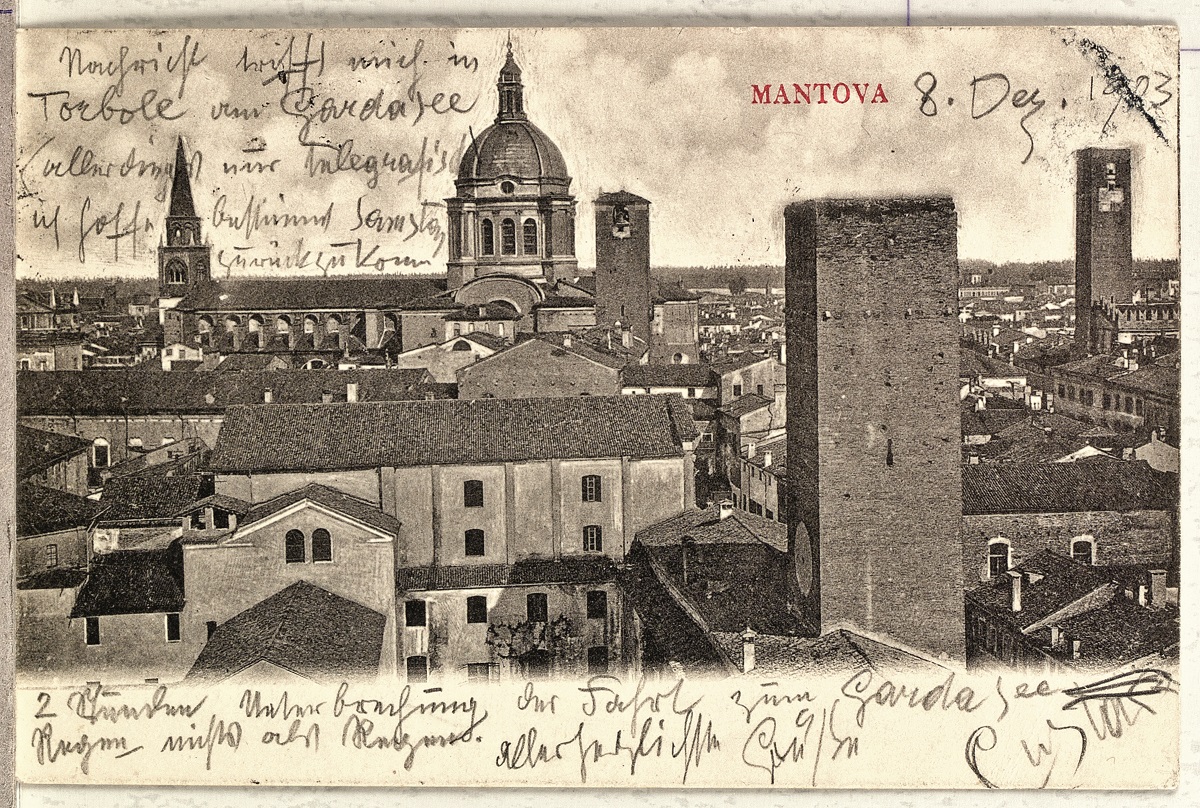 Nachricht trifft mich in
Torbole am Gardasee
(allerdings nur telegrafisch
ich hoffe bestimmt Samstag
zurückzukomm
MANTOVA 8. Dez. 1903
2 Stunden Unterbrechung der Fahrt zum Gardasee
Regen nichts als Regen. allerherzlichste Grüße
Gustav